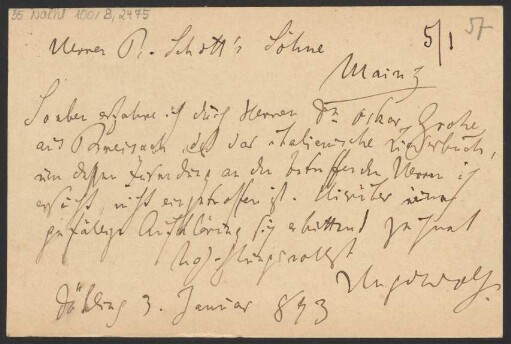 55 Nachl 100/B, 2475
5/1 57
Herren B. Schott's Söhne
Mainz
Soeben erfahre ich durch Herrn Dr Oskar Grohe
aus das italienische Liederbuch,
um dessen Zusendung an den betreffenden Herrn ich
ersucht, nicht eingetroffen ist. Hierüber
gefällige Aufklärung sich erbittend zeichnet
hochachtungsvollst
Hugo Wolf.
Döbling 3. Januar 893